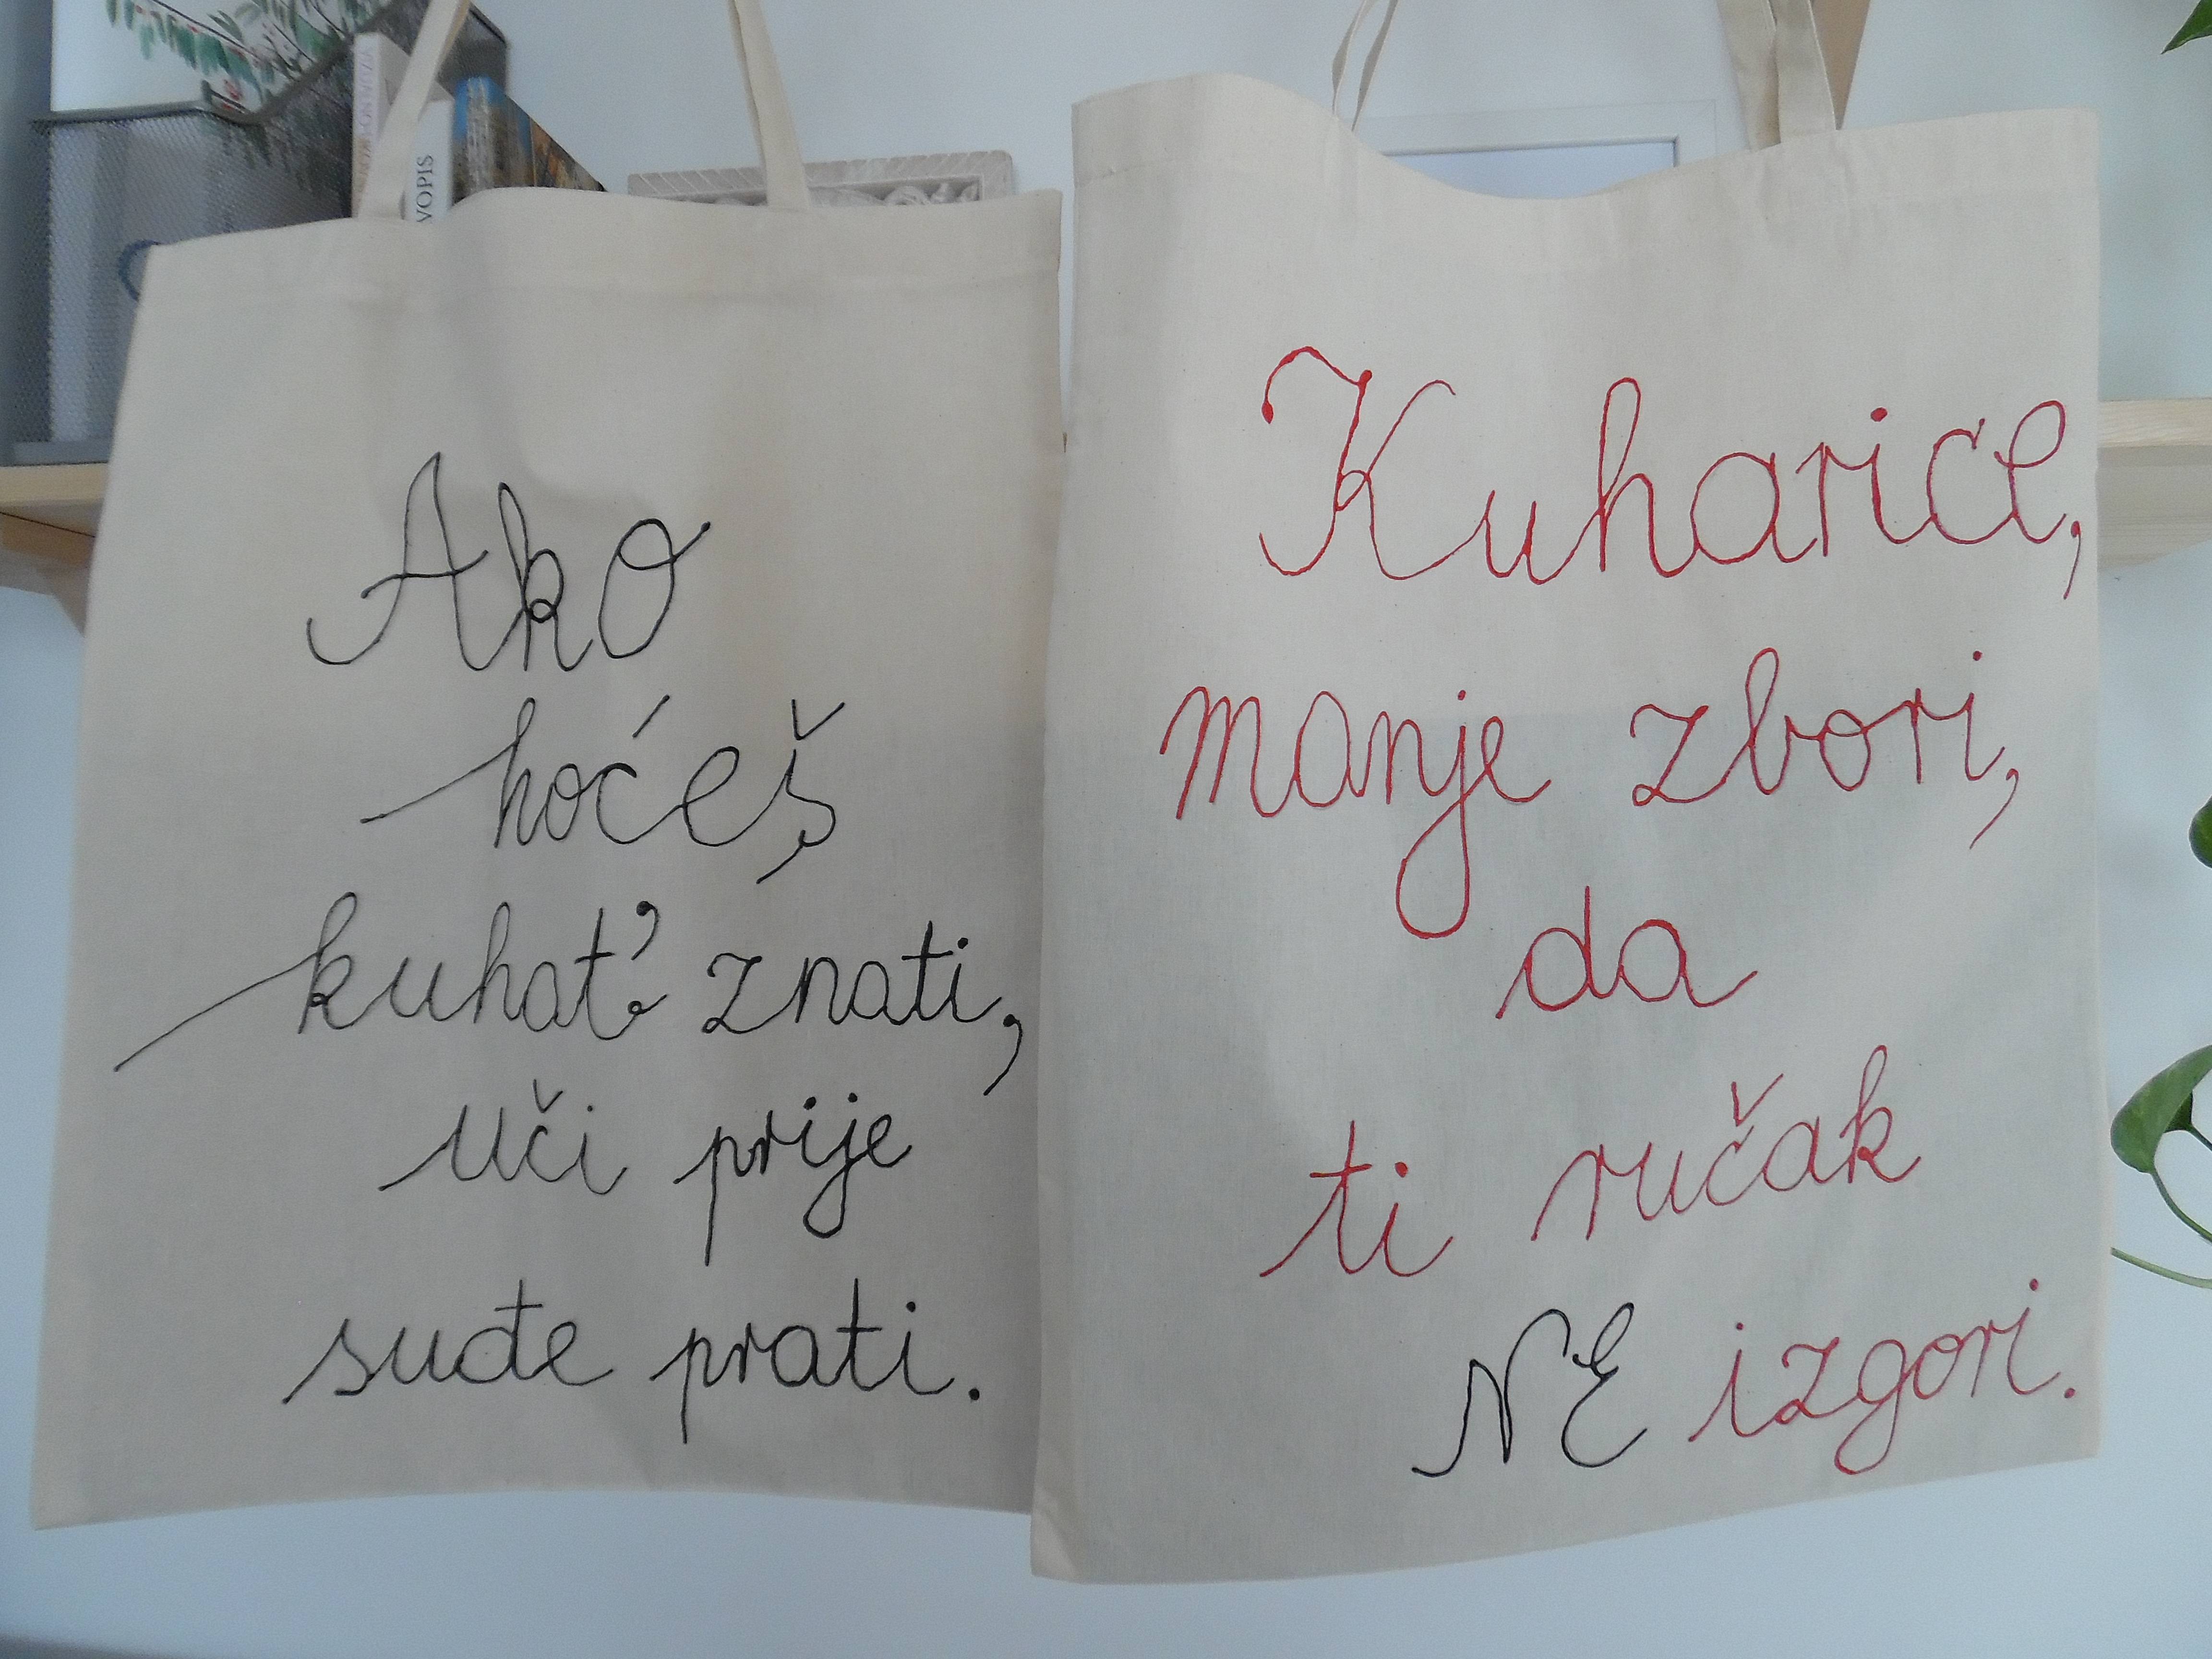 VOPIS
Ako
hoćeš
kuhat' znati,
uči prije
suđe prati.
Kuharice,
manje zbori,
da
ti ručak
NE izgori.